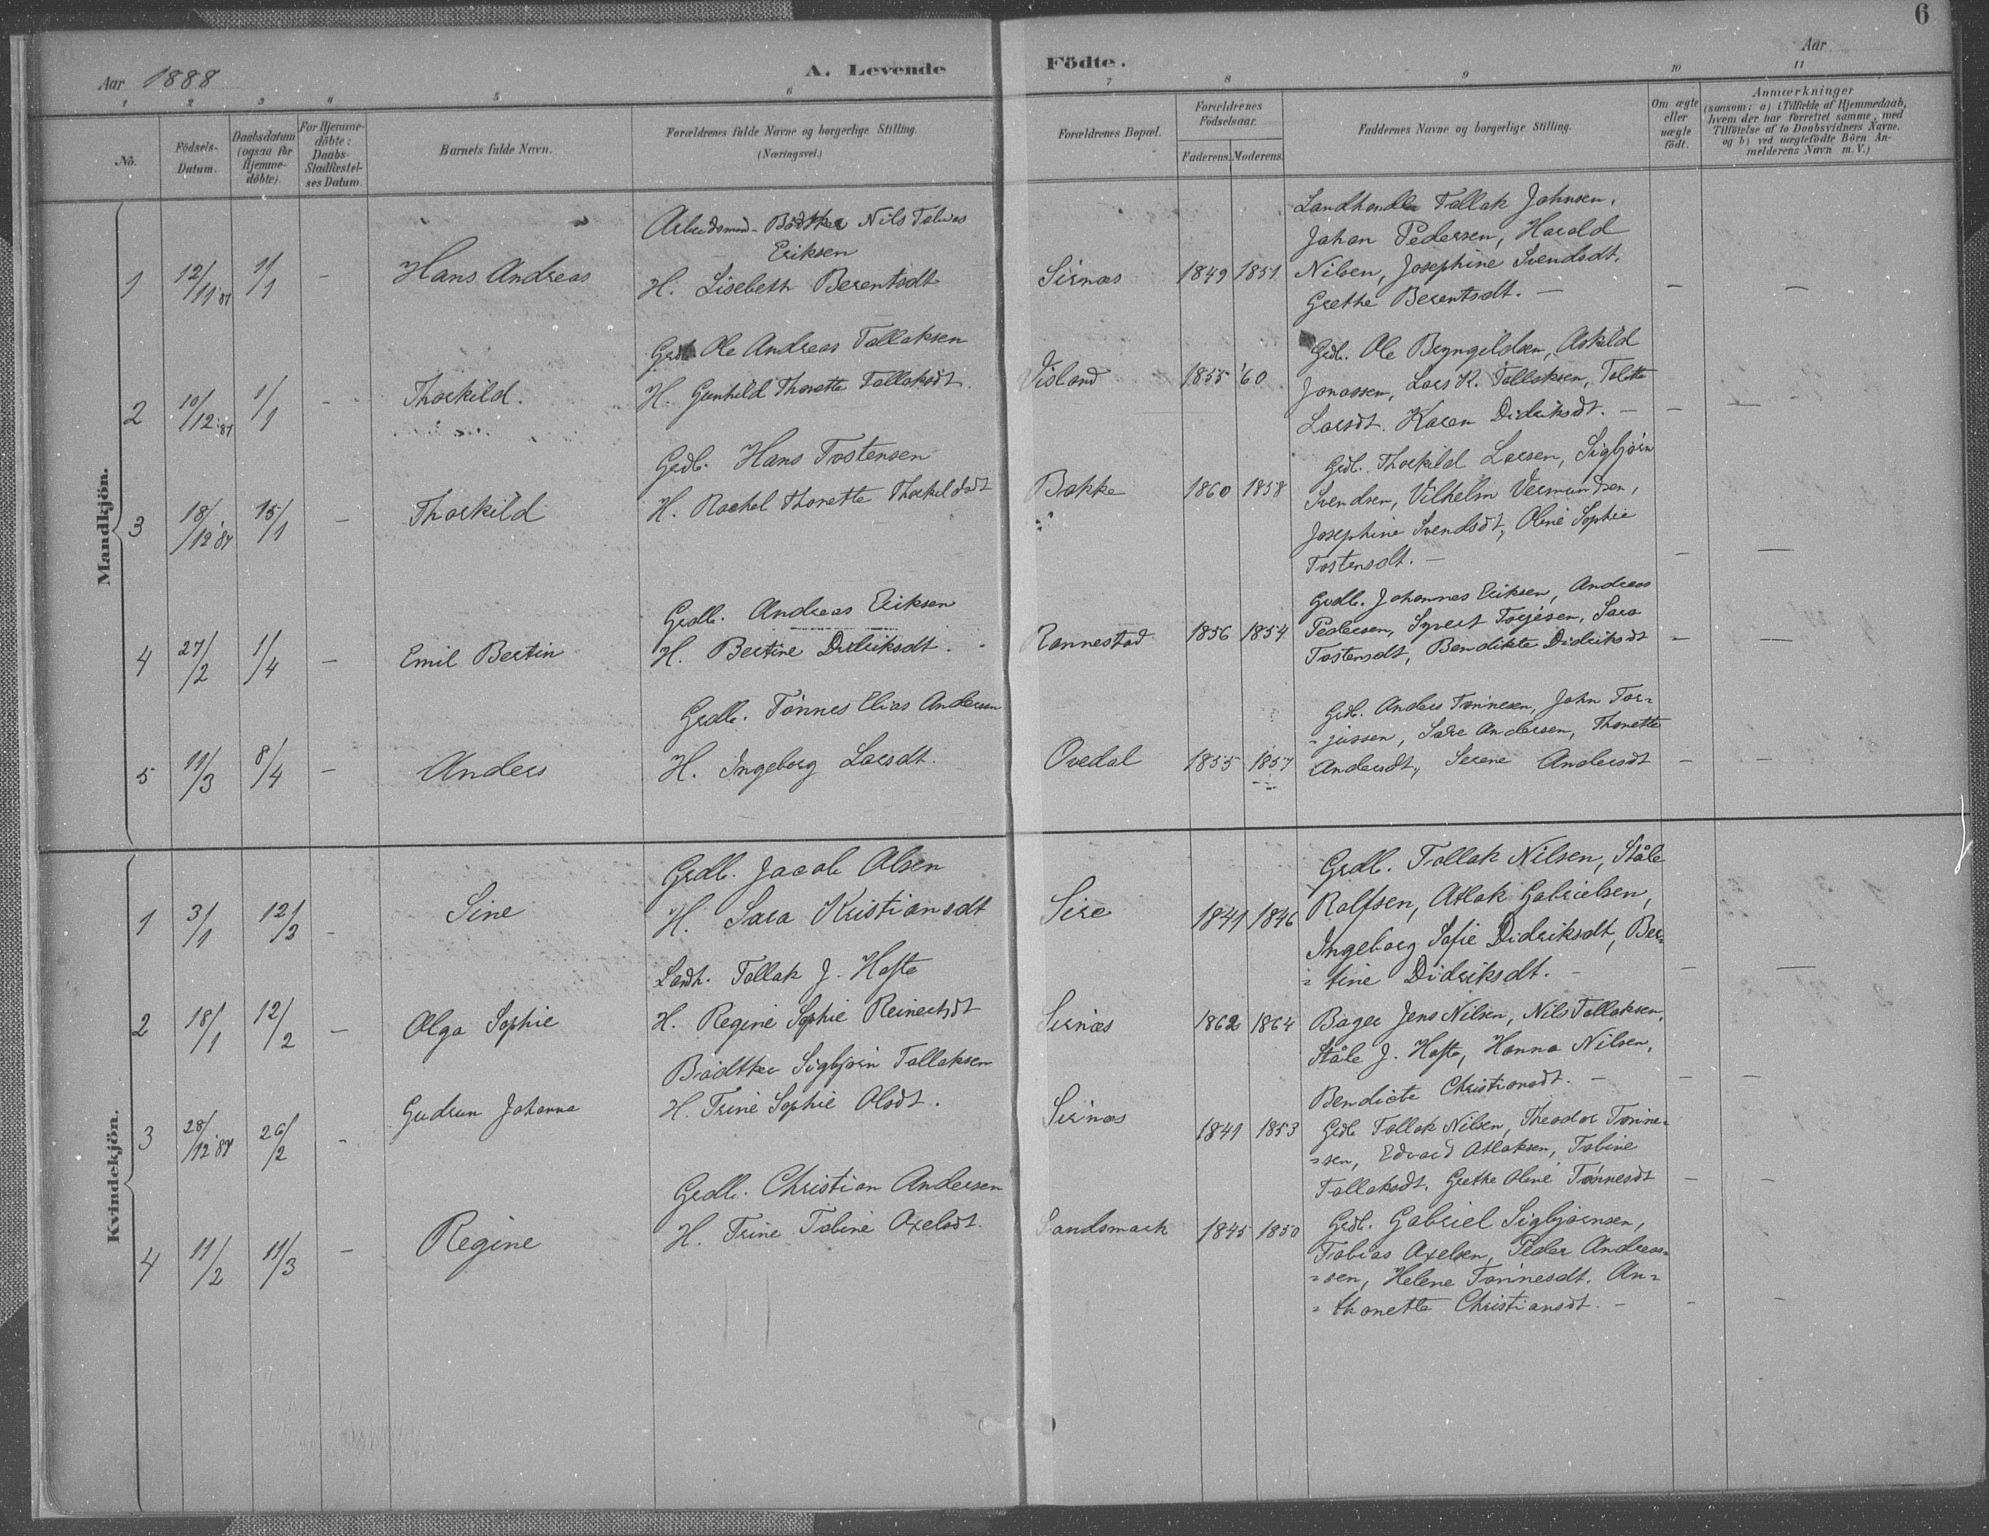 6
Aar 1888
A. Levende Födte.
Aar
1 2 3 4 5 6 7 8 9 10 11
No.
Födsels-Datum.
Daabsdatum (ogsaa for Hjemme-döbte).
For Hjemme-döbte: Daabs-Stadfæstel-ses Datum.
Barnets fulde Navn.
Forældrenes fulde Navne og borgerlige Stilling. (Næringsvei.)
Forældrenes Bopæl.
Forældrenes Födselsaar.
Faderens. Moderens.
Faddernes Navne og borgerlige Stilling.
Om ægte eller uægte födt.
Anmærkninger
(saasom: a) i Tilfælde af Hjemmedaab, hvem der har forrettet samme, med Tilföielse af to Daabsvidners Navne, og b) ved uægtefödte Börn Anmelderens Navn m. V.)
Mandkjön.
1 12/11 87 1/1 – Hans Andreas
Arbeidsmand - Bødtker Nils Tobias
Eriksen
H. Lisebeth Berentsdt
Sirnæs 1849 1851
Landhandler Tollak Johnsen,
Johan Pedersen, Harald
Nilsen, Josephine Svendsdt.
Grethe Berentsdt. – – –
2 10/12 87 1/1 – Thorkild.
Grdb. Ole Andreas Tollaksen
H. Gunhild Thonette Tollaksdt.
Visland 1855 '60
Grdb. Ole Bryngildsen, Askild
Jonassen, Lars K. Tollaksen, Tolette
Larsdt. Karen Didriksdt. – – –
3 18/12 87 15/1 – Thorkild
Grdb. Hans Tostensen
H. Rachel Thonette Thorkildsdt
Bakke 1860 1858
Grdb. Thorkild Larsen, Sigbjørn
Svendsen, Vilhelm Vermundsen,
Josephine Svendsdt, Oline Sophie
Tostensdt. – – –
4 27/2 1/4 – Emil Bertin
Grdb. Andreas Eriksen
H. Bertine Didriksdt.
Rannestad 1856 1854
Grdb. Johannes Eriksen, Andreas
Pedersen, Syvert Torjesen, Sara
Tostensdt, Bendikte Didriksdt – –
5 11/3 8/4 – Anders
Grdb. Tønnes Elias Andersen
H. Ingeborg Larsdt.
Ovedal 1855 1857
Grdb. Anders Tønnesen, John Tor-
-jussen, Sære Andersen, Thonette
Andersdt, Serene Andersdt – –
Kvindekjön.
1 3/1 12/3 – Sine
Grdb. Jacob Olsen
H. Sara Kristiansdt
Sire 1841 1846
Grdb. Tollak Nilsen, Ståle
Rolfsen, Atlak Gabrielsen,
Ingeborg Sofie Didriksdt, Ber-
-tine Didriksdt. – – –
2 18/1 12/2 – Olga Sophie
Landh. Tollak J. Hafte
H. Regine Sophie Reinertsdt
Sirnæs 1862 1864
Bager Jens Nilsen, Nils Tollaksen,
Ståle J. Hafte, Hanna Nilsen,
Bendicte Christiansdt. – – –
3 28/12 87 26/2 – Gudrun Johanna
Bødtker Sigbjørn Tollaksen
H. Trine Sophie Olsdt.
Sirnæs 1841 1853
Grdb Tollak Nilsen, Theodor Tønne-
-sen, Edvard Atlaksen, Tobine
Tollaksdt. Grethe Oline Tønnesdt – –
4 11/2 11/3 – Regine
Grdb. Christian Andersen
H. Trine Tobine Axelsdt.
Sandsmark 1845 1850
Grdb. Gabriel Sigbjørnsen,
Tobias Axelsen, Peder Andreas-
-sen, Helene Tønnesdt. An-
-thonette Christiansdt. – – –